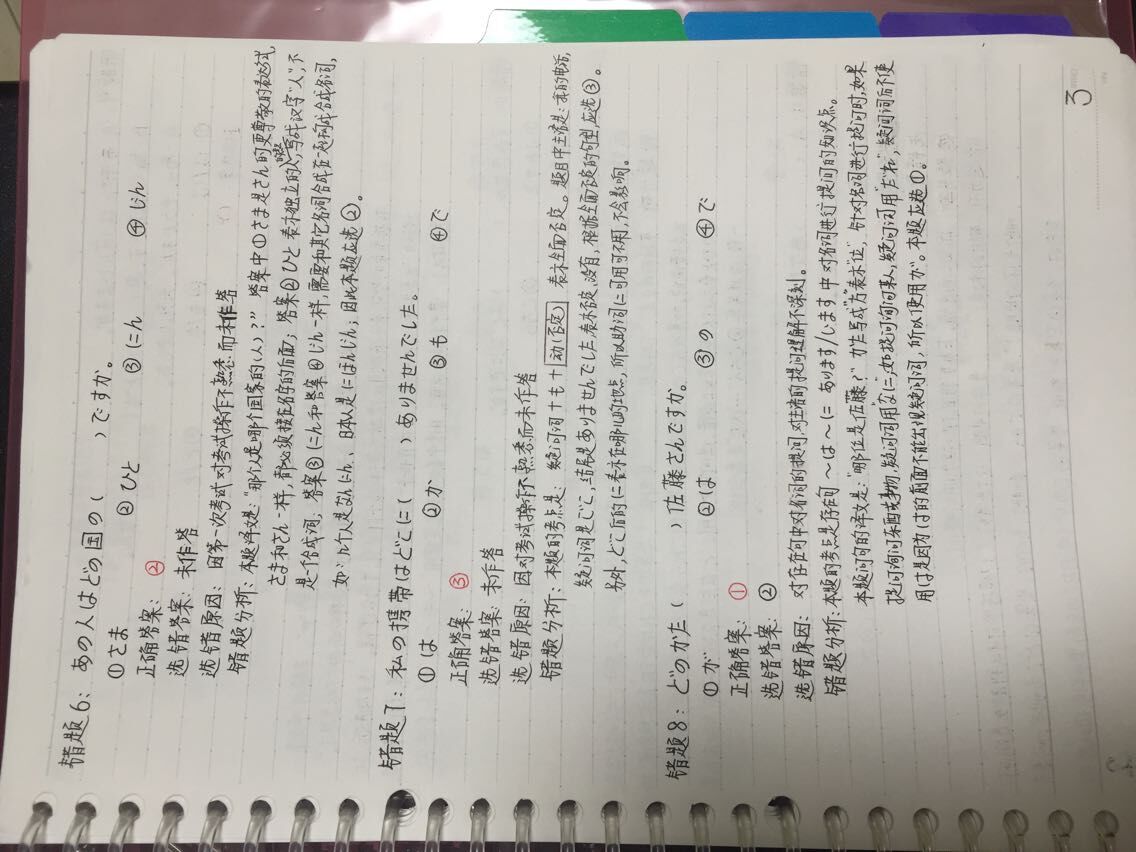 错题6: あの人はどの国の ( ) ですか。
①さま ②ひと ③にん ④じん
正确答案: ②
选错答案: 未作答
选错原因: 因第一次考试对考试操作不熟悉而未作答
错题分析: 本题译文是:"那个人是哪个国家的(人)?" 答案中①さま是さん的更尊敬的表达式
さま和さん一样, 都必须接在名字的后面; 答案②ひと表示独立的人, 写成汉字"人", 不
是合成词; 答案③にん和答案④じん一样, 需要和其它名词合成在一起构成合成名词,
如: 几个人是なんにん、日本人是にほんじん; 因此本题应选②。
错题7: 私の携帯はどこに ( ) ありませんでした。
①は ②か ③も ④で
正确答案: ③
选错答案: 未作答
选错原因: 因对考试操作不熟悉而未作答
错题分析: 本题的考点是: 疑问词+も+动(否定) 表示全面否定。题目中主语是: 我的电话,
疑问词是どこ, 结尾是ありませんでした表示否定, 没有, 根据全面否定的句型, 应选③。
另外, どこ后的に表示在哪儿的地点, 所以助词に可用可不用, 不会影响。
错题8: どのかた ( ) 佐藤さんですか。
①が ②は ③の ④で
正确答案: ①
选错答案: ②
选错原因: 对存在句中对名词的提问, 对主语的提问理解不深刻。
错题分析: 本题的考点是存在句 ~は~に あります/います中对名词进行提问的知识点。
本题问句的译文是: "哪位是佐藤?" かた写成方表示"位", 针对名词进行提问时, 如果
提问询问东西或事物, 疑问词用"なに", 如提问询问某人, 疑问词用"だれ", 疑问词后不使
用は是因为は的前面不能出现疑问词, 所以使用が。本题应选①。
3